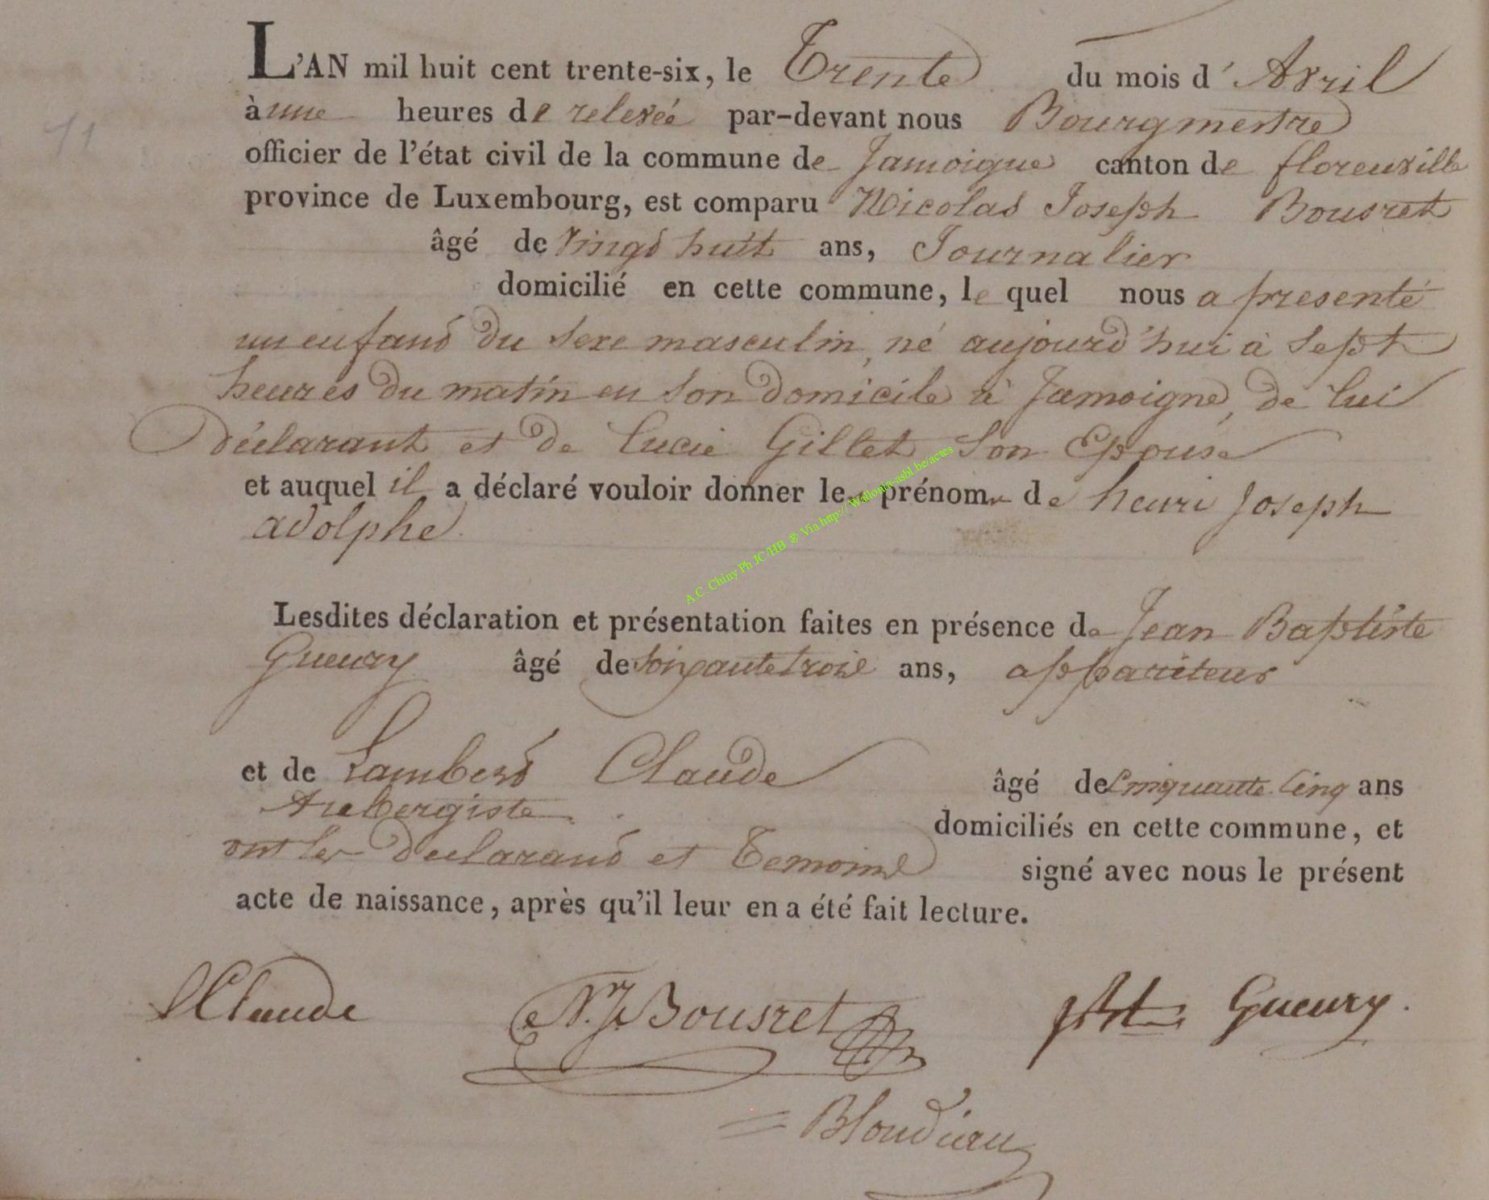 71
L'AN mil huit cent trente-six, le Trente du mois d'Avril
à une heures de relevée par-devant nous Bourgmestre
officier de l'état civil de la commune de Jamoigne canton de florenville
province de Luxembourg, est comparu Nicolas Joseph Bousret
âgé de vingt huit ans, Journalier
domicilié en cette commune, le quel nous a presenté
un enfant du sexe masculin, né aujourd'hui à sept
heures du matin en son domicile à Jamoigne, de lui
déclarant et de Lucie Gillet son Epouse
et auquel il a déclaré vouloir donner les prénoms de henri Joseph
adolphe
A.C. Chiny Ph JC/HB & Via http://Walloniaasbl.be/actes
Lesdites déclaration et présentation faites en présence de Jean Baptiste
Gueury âgé de soixante trois ans, appariteur
et de Lambert Claude âgé de Cinquante Cinq ans
Aubergiste domiciliés en cette commune, et
ont les declarant et Temoins signé avec nous le présent
acte de naissance, après qu'il leur en a été fait lecture.
LClaude N.J.Bousret JBte Gueury.
Blondiau